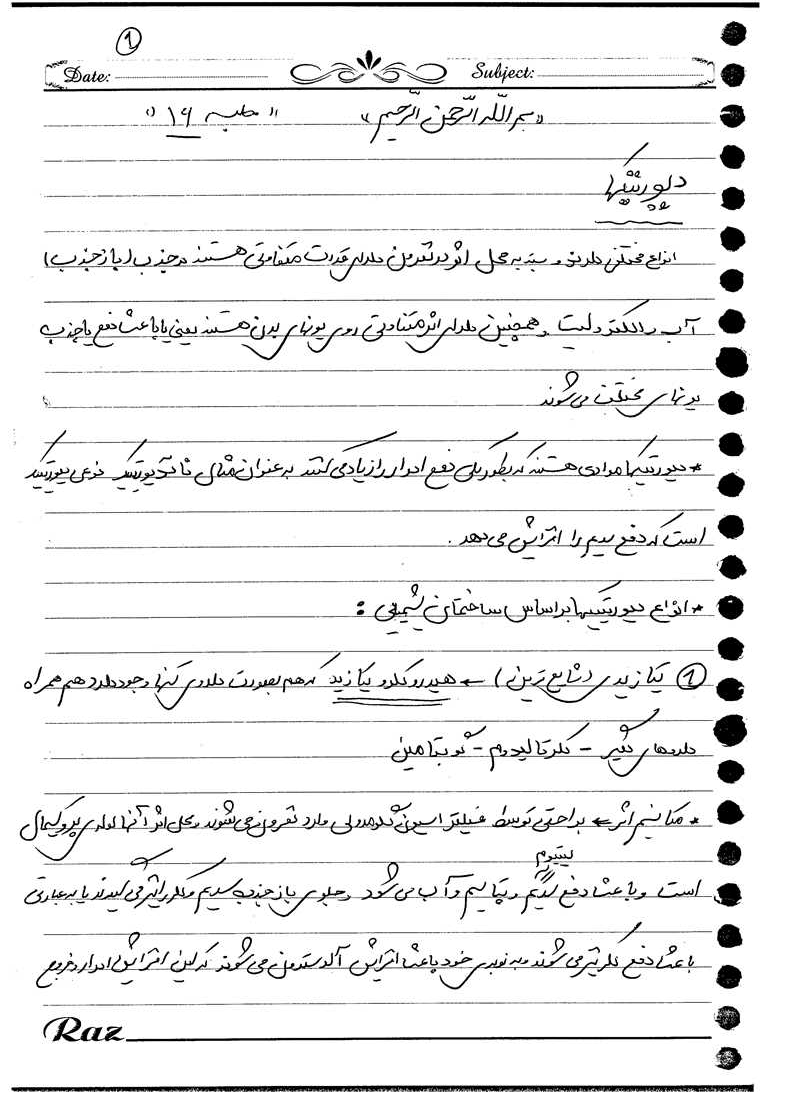 ①
Date: Subject:
« بسم الله الرحمن الرحیم » « جلسه ۱۶ »
دیورتیکها
انواع مختلفی دارند و بسته به محل اثر در نفرون دارای قدرت متفاوتی هستند در جذب (بازجذب)
آب و الکترولیت و همچنین دارای اثر متفاوتی روی یونهای بدن هستند یعنی یا باعث دفع یا جذب
یونهای مختلف می شوند
* دیورتیکها موادی هستند که بطور کلی دفع ادرار را زیاد می کنند به عنوان مثال ناتریورتیک نوعی دیورتیک
است که دفع سدیم را افزایش می دهد .
* انواع دیورتیکها بر اساس ساختمان شیمیایی :
① تیازیدی (شایع ترین) ← هیدروکلروتیازید که هم بصورت داروی تنها وجود دارد هم همراه
داروهای دیگر - کلرتالیدون - اینداپامین
* مکانیسم اثر ← براحتی توسط فیلتراسیون گلومرولی وارد نفرون می شوند و محل اثر آنها لوله ی پروگزیمال
است و باعث دفع سدیم و پتاسیم و آب می شود و جلوی بازجذب سدیم و کلر را نیز می گیرند یا به عبارتی
لیتیوم
باعث دفع کلر نیز می شوند و به نوبه ی خود باعث افزایش آلدسترون می شوند که این افزایش ادرار و خروج
Raz